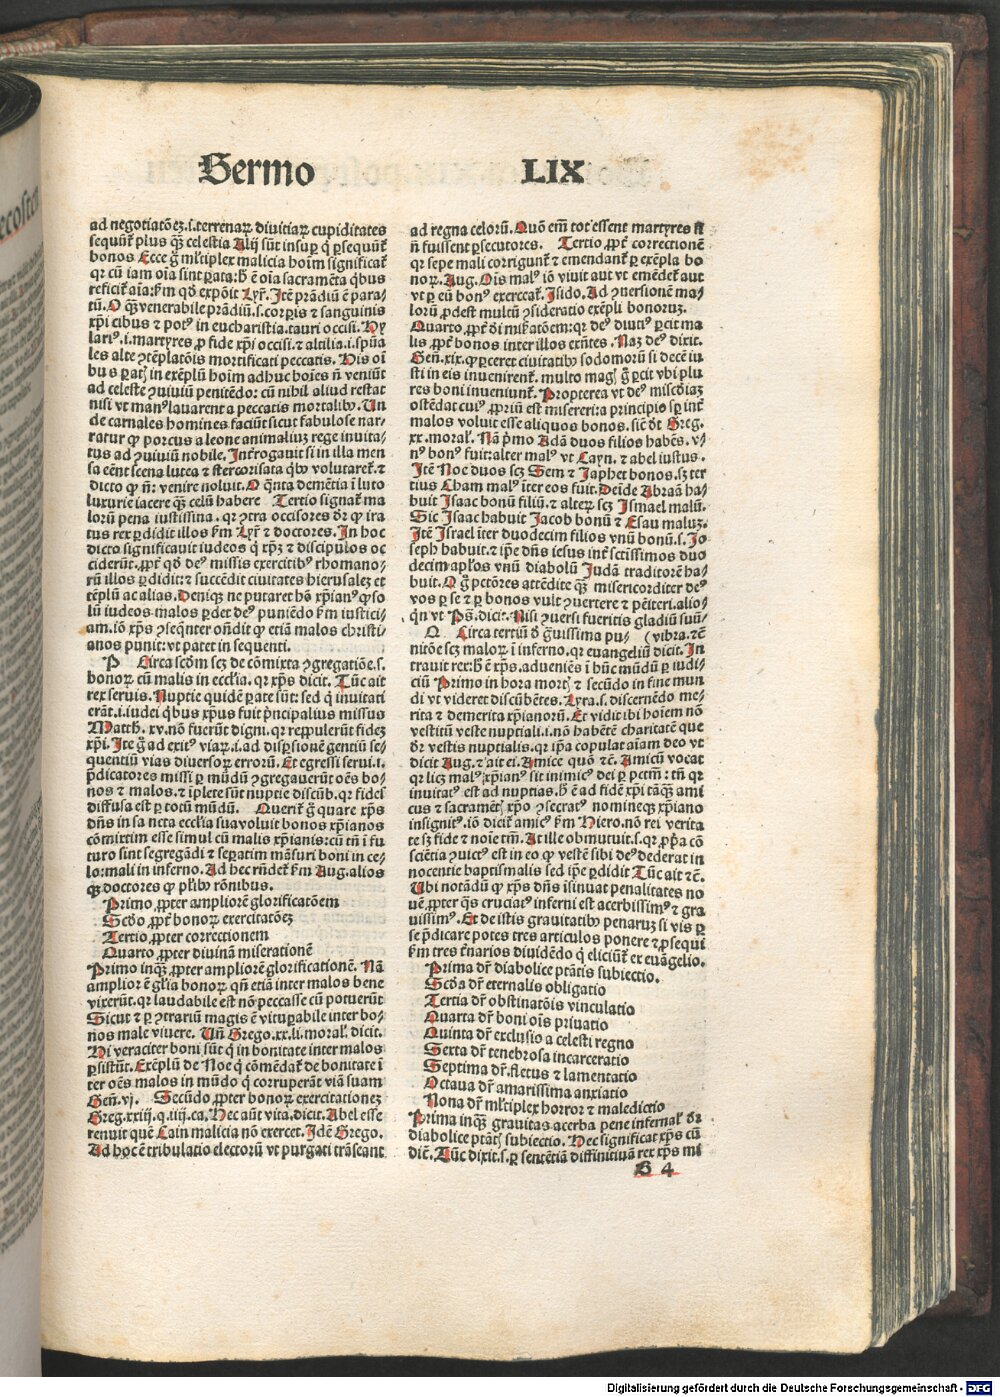 Sermo LIX
ad negotiatōeʒ.i.terrenaꝝ diuitiaꝝ cupiditates
sequūt̄ plus qͣꝫ celestia Alij sūt insuꝑ q̇ ꝑsequūt̄
bonos Ecce g̊ ml̓tiplex malicia hoīm significat̄
qꝛ cū iam oīa sint ꝑata: h̓ ē oīa sacramēta q̇bus
reficit̄ aīa: ẜm qḋ expōit Lyr̄. Itē prādiū ē para-
tū. O qͣꝫ venerabile prādiū.s.corꝑis ⁊ sanguinis
xp̄i cibus ⁊ potꝰ in eucharistia.tauri occisi. Hy
larꝰ.i.martyres ꝓ fide xp̄i occisi.⁊ altilia.i.spūa
les alte ꝯtēplatōis mortificati peccatis. His oī
bus ꝑatꝭ in exēplū hoīm adhuc hoīes n̄ veniūt
ad celeste ꝯuiuiū penitēdo: cū nihil aliud restat
nisi vt manꝰ lauarent a peccatis mortalibꝰ. Un
de carnales homines faciūt sicut fabulose nar-
ratur ꝙ porcus a leone animaliuꝫ rege inuita-
tus ad ꝯuiuiū nobile. Interrogauit si in illa men
sa eēnt scena lutea ⁊ stercorisata q̇bꝰ volutaret̄.⁊
dicto ꝙ n̄: venire noluit. O q̄nta demētia ī luto
luxurie iacere qͣꝫ celū habere Tertio signat̄ ma
lorū pena iustissima.qꝛ ꝯtra occisores dr̄ ꝙ ira
tus rex ꝑdidit illos ẜm Lyr̄ ⁊ doctores. In hoc
dicto significauit iudeos q̇ xp̄ꝫ ⁊ discipulos oc
ciderūt. ꝓpt̄ qḋ deꝰ missis exercitibꝰ rhomano-
rū illos ꝑdidit: ⁊ succēdit ciuitates hierusaleꝫ et
tēplū ac alias. Deniqꝫ ne putaret hō xp̄ianꝰ ꝙ so
lū iudeos malos ꝑdet deꝰ puniēdo ẜm iustici-
am.iō xp̄s ꝯseqnter on̄dit ꝙ etiā malos christi-
anos punit: vt patet in sequenti.
P Circa scḋm scꝫ de cōmixta ꝯgregatiōe.s.
bonoꝝ cū malis in eccl̓ia.qꝛ xp̄s dicit. Tūc ait
rex seruis. Nuptie quidē ꝑate sūt: sed q̇ inuitati
erāt.i.iudei q̇bus xp̄us fuit pͥncipalius missus
Matth. xv. nō fuerūt digni.qꝛ reppulerūt fideꝫ
xp̄i. Ite g̊ ad exitꝰ viaꝝ.i.ad disꝑsionē gentiū se-
quentiū vias diuersoꝝ erroꝝ. Et egressi serui.i.
p̄dicatores missi ꝑ mūdū ꝯgregauerūt oēs bo-
nos ⁊ malos.⁊ īplete sūt nuptie discūb.qꝛ fides
diffusa est ꝑ totū mūdū. Querit̄ g̊ quare xp̄s
dn̄s in sancta eccl̓ia sua voluit bonos xp̄ianos
cōmixtim esse simul cū malis xp̄ianis: cū tn̄ ī fu
turo sint segregādi ⁊ seꝑatim māsuri boni in ce-
lo: mali in inferno. Ad hec rn̄det̄ ẜm Aug. alios
qꝫ doctores ꝙ pl̓ibꝰ rōnibus.
Primo ꝓpter ampliorē glorificatōem
Scḋo ꝓpt̄ bonoꝝ exercitatōeꝫ
Tertio ꝓpter correctionem
Quarto ꝓpter diuinā miserationē
Primo inqͣꝫ ꝓpter ampliorē glorificationē. Nā
amplior ē gl̓ia bonoꝝ qn̄ etiā inter malos bene
vixerūt.qꝛ laudabile est nō peccasse cū potuerūt
Sicut ⁊ ꝑ ꝯtrariū magis ē vituꝑabile inter bo-
nos male viuere. Un̄ Grego. xx. li. moral̓. dicit.
Hi veraciter boni sūt q̇ in bonitate inter malos
ꝑsistūt. Exēplū de Noe q̇ cōmēdat̄ de bonitate ī
ter oēs malos in mūdo q̇ corruperāt viā suam
Geñ. vj. Secūdo ꝓpter bonoꝝ exercitationeꝫ
Greg. xxiij. q. iiij. ca. Hec aūt vita. dicit. Abel esse
renuit quē Cain malicia nō exercet. Idē Grego.
Ad hoc ē tribulatio electorū vt purgati trāseant
ad regna celorū. Quō em̄ tot essent martyres si
n̄ fuissent ꝑsecutores. Tertio ꝓpt̄ correctionē
qꝛ sepe mali corrigunt̄ ⁊ emendant̄ ꝑ exēpla bo
noꝝ. Aug. Oīs malꝰ iō viuit aut vt emēdet̄ aut
vt ꝑ eū bonꝰ exerceat̄. Isido. Ad ꝯuersionē ma-
lorū ꝓdest multū ꝯsideratio exēpli bonoruꝫ.
Quarto ꝓpt̄ di miẜatōem: qꝛ deꝰ diutiꝰ ꝑcit ma
lis ꝓpt̄ bonos inter illos exn̄tes. Naꝫ deꝰ dixit.
Geñ. xix. ꝙ ꝑceret ciuitatibꝰ sodomorū si decē iu-
sti in eis inuenirent̄. multo magꝭ g̊ ꝑcit vbi plu
res boni inueniunt̄. Propterea vt deꝰ misc̓diaꝫ
ostēdat cuiꝰ ꝓpriū est misereri: a principio sꝑ int̄
malos voluit esse aliquos bonos. sic̄ dt̄ Greg.
xx. moral̓. Nā pͥmo Adā duos filios habēs. v-
nꝰ bonꝰ fuit: alter malꝰ vt Cayn. ⁊ abel iustus.
Itē Noe duos scꝫ Sem ⁊ Japhet bonos. sꝫ ter
tius Cham malꝰ īter eos fuit. Deīde Abraā ha-
buit Isaac bonū filiū.⁊ alteꝝ scꝫ Ismael malū.
Sic Isaac habuit Jacob bonū ⁊ Esau maluꝫ.
Itē Israel īter duodecim filios vnū bonū. s. Jo
seph habuit.⁊ ip̄e dn̄s iesus int̄ sctissimos duo
decim apl̓os vnū diabolū Judā traditorē ha-
buit. O g̊ pctōres attēdite qͣꝫ misericorditer deꝰ
vos ꝑ se ⁊ ꝑ bonos vult ꝯuertere ⁊ pēiteri. alio-
qn̄ vt Pṡ. dicit. Nisi ꝯuersi fueritis gladiū suū-
Q Circa tertiū d̓ g̊uissima pu- (vibra. ⁊c̄
nitōe scꝫ maloꝝ ī inferno. qꝛ euangeliū dicit. In
trauit rex: h̓ ē xp̄s. adueniēs ī hūc mūdū ꝑ iudi-
ciū Primo in hora mortꝭ ⁊ secūdo in fine mun
di vt videret discūbētes. Lyra. s. discernēdo me-
rita ⁊ demerita xp̄ianorū. Et vidit ibi hoīem nō
vestitū veste nuptiali. i. nō habētē charitatē que
dr̄ vestis nuptialis. qꝛ ip̄a copulat aīam deo vt
dicit Aug. ⁊ ait ei. Amice quō ⁊c̄. Amicū vocat
qꝛ licꝫ malꝰ xp̄ianꝰ sit inimicꝰ dei ꝑ pctm̄: tn̄ qꝛ
inuitatꝰ est ad nuptias. h̓ ē ad fidē xp̄i tāqͣꝫ ami
cus ⁊ sacramētꝭ xp̄o ꝯsecratꝰ nomineqꝫ xp̄iano
insignitꝰ. iō dicit̄ amicꝰ ẜm Hiero. nō rei verita
te sꝫ fide ⁊ noīe tm̄. At ille obmutuit. s. qꝛ ꝓpͥa cō
sciētia ꝯuictꝰ est in eo ꝙ vestē sibi deꝰ dederat in
nocentie baptismalis sed ip̄e ꝑdidit Tūc ait ⁊c̄.
Ubi notādū ꝙ xp̄s dn̄s īsinuat penalitates no
uē ꝓpter qͣs cruciatꝰ inferni est acerbissimꝰ ⁊ gra
uissimꝰ. Et de istis grauitatibꝰ penaruꝫ si vis ꝑ
se p̄dicare potes tres articulos ponere ⁊ ꝓsequi
ẜm tres t̓narios diuidēdo q̇ eliciūt̄ ex euāgelio.
Prima dr̄ diabolice ptātis subiectio.
Scḋa dr̄ eternalis obligatio
Tertia dr̄ obstinatōis vinculatio
Quarta dr̄ boni oīs priuatio
Quinta dr̄ exclusio a celesti regno
Sexta dr̄ tenebrosa incarceratio
Septima dr̄ fletus ⁊ lamentatio
Octaua dr̄ amarissima anxiatio
Nona dr̄ ml̓tiplex horror ⁊ maledictio
Prima inqͣꝫ grauitas acerba pene infernal̓ dr̄
diabolice ptātꝭ subiectio. Hec significat̄ xp̄s cū
dic̄. Tūc dixit. s. ꝑ sentētiā diffinitiuā rex xp̄s mi
B 4
Digitalisierung gefördert durch die Deutsche Forschungsgemeinschaft - DFG